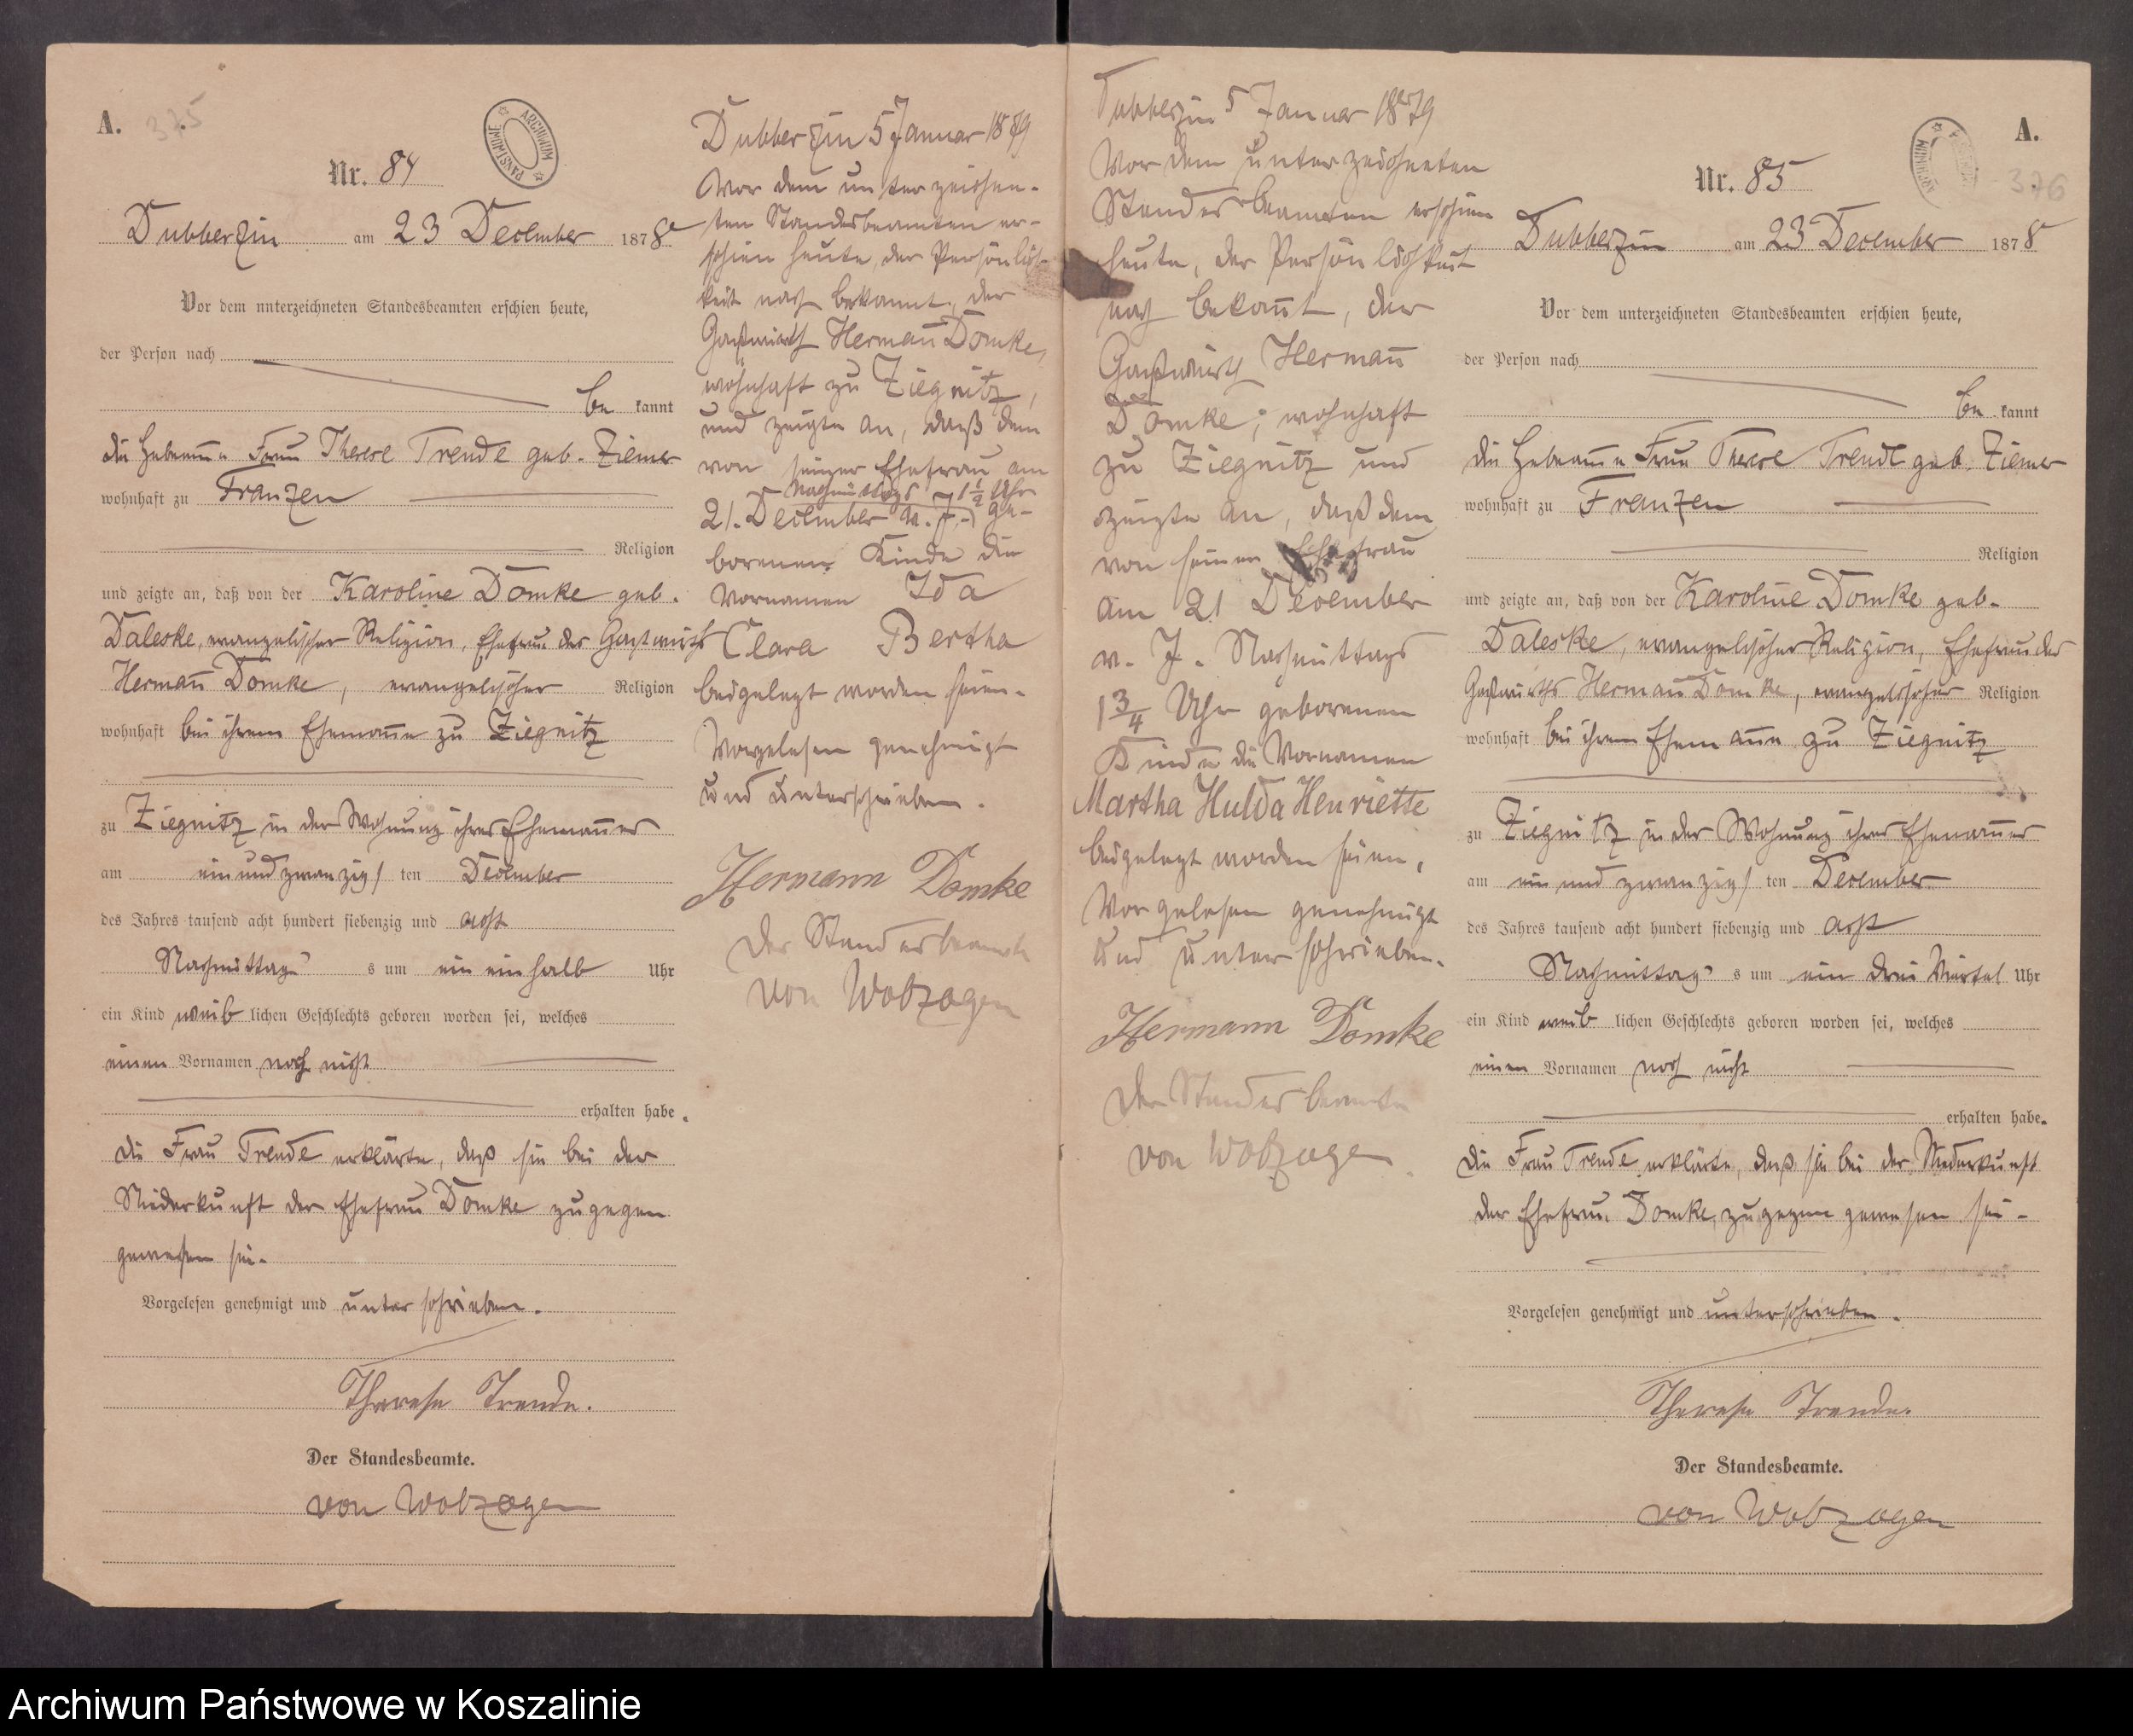 A.
375
ARCHIWUM PAŃSTWOWE
Nr. 84
Dubberzin am 23 December 1878
Vor dem unterzeichneten Standesbeamten erschien heute,
der Person nach
be kannt
die Hebamme Frau Therese Trende geb. Ziemer
wohnhaft zu Franzen
Religion
und zeigte an, daß von der Karoline Domke geb.
Daleske, evangelischer Religion, Ehefrau des Gastwirth
Hermann Domke, evangelischer Religion
wohnhaft bei ihrem Ehemanne zu Ziegnitz
zu Ziegnitz in der Wohnung ihres Ehemannes
am ein und zwanzig ten December
des Jahres tausend acht hundert siebenzig und acht
Nachmittags s um ein ein halb Uhr
ein Kind weib lichen Geschlechts geboren worden sei, welches
einen Vornamen noch nicht
erhalten habe.
die Frau Trende erklärte, daß sie bei der
Niederkunft der Ehefrau Domke zugegen
gewesen sei.
Vorgelesen genehmigt und unterschrieben.
Therese Trende.
Der Standesbeamte.
von Wolzogen
Dubberzin 5 Januar 1879
Vor dem unterzeichne-
ten Standesbeamten er-
schien heute, der Persönlich-
keit nach bekannt, der
Gastwirth Hermann Domke,
wohnhaft zu Ziegnitz,
und zeigte an, daß dem
von seiner Ehefrau am
Nachmittags 1 1/2 Uhr
21. December v. J. ge-
borenen Kinde die
Vornamen Ida
Clara Bertha
beigelegt worden seien.
Vorgelesen genehmigt
und unterschrieben.
Hermann Domke
Der Standesbeamte
von Wolzogen
Dubberzin 5 Januar 1879
Vor dem unterzeichneten
Standesbeamten erschien
heute, der Persönlichkeit
nach bekannt, der
Gastwirth Hermann
Domke, wohnhaft
zu Ziegnitz und
zeigte an, daß dem
von seiner Ehefrau
am 21 December
v. J. Nachmittags
1 3/4 Uhr geborenen
Kinde die Vornamen
Martha Hulda Henriette
beigelegt worden seien,
Vorgelesen genehmigt
und unterschrieben.
Hermann Domke
Der Standesbeamte
von Wolzogen
A.
376
Nr. 85
Dubberzin am 23 December 1878
Vor dem unterzeichneten Standesbeamten erschien heute,
der Person nach
be kannt
die Hebamme Frau Therese Trende geb. Ziemer
wohnhaft zu Franzen
Religion
und zeigte an, daß von der Karoline Domke geb.
Daleske, evangelischer Religion, Ehefrau des
Gastwirths Hermann Domke, evangelischer Religion
wohnhaft bei ihrem Ehemanne zu Ziegnitz
zu Ziegnitz in der Wohnung ihres Ehemannes
am ein und zwanzig ten December
des Jahres tausend acht hundert siebenzig und acht
Nachmittags s um ein drei Viertel Uhr
ein Kind weib lichen Geschlechts geboren worden sei, welches
einen Vornamen noch nicht
erhalten habe.
die Frau Trende erklärte, daß sie bei der Niederkunft
der Ehefrau Domke zugegen gewesen sei.
Vorgelesen genehmigt und unterschrieben.
Therese Trende.
Der Standesbeamte.
von Wolzogen
Archiwum Państwowe w Koszalinie